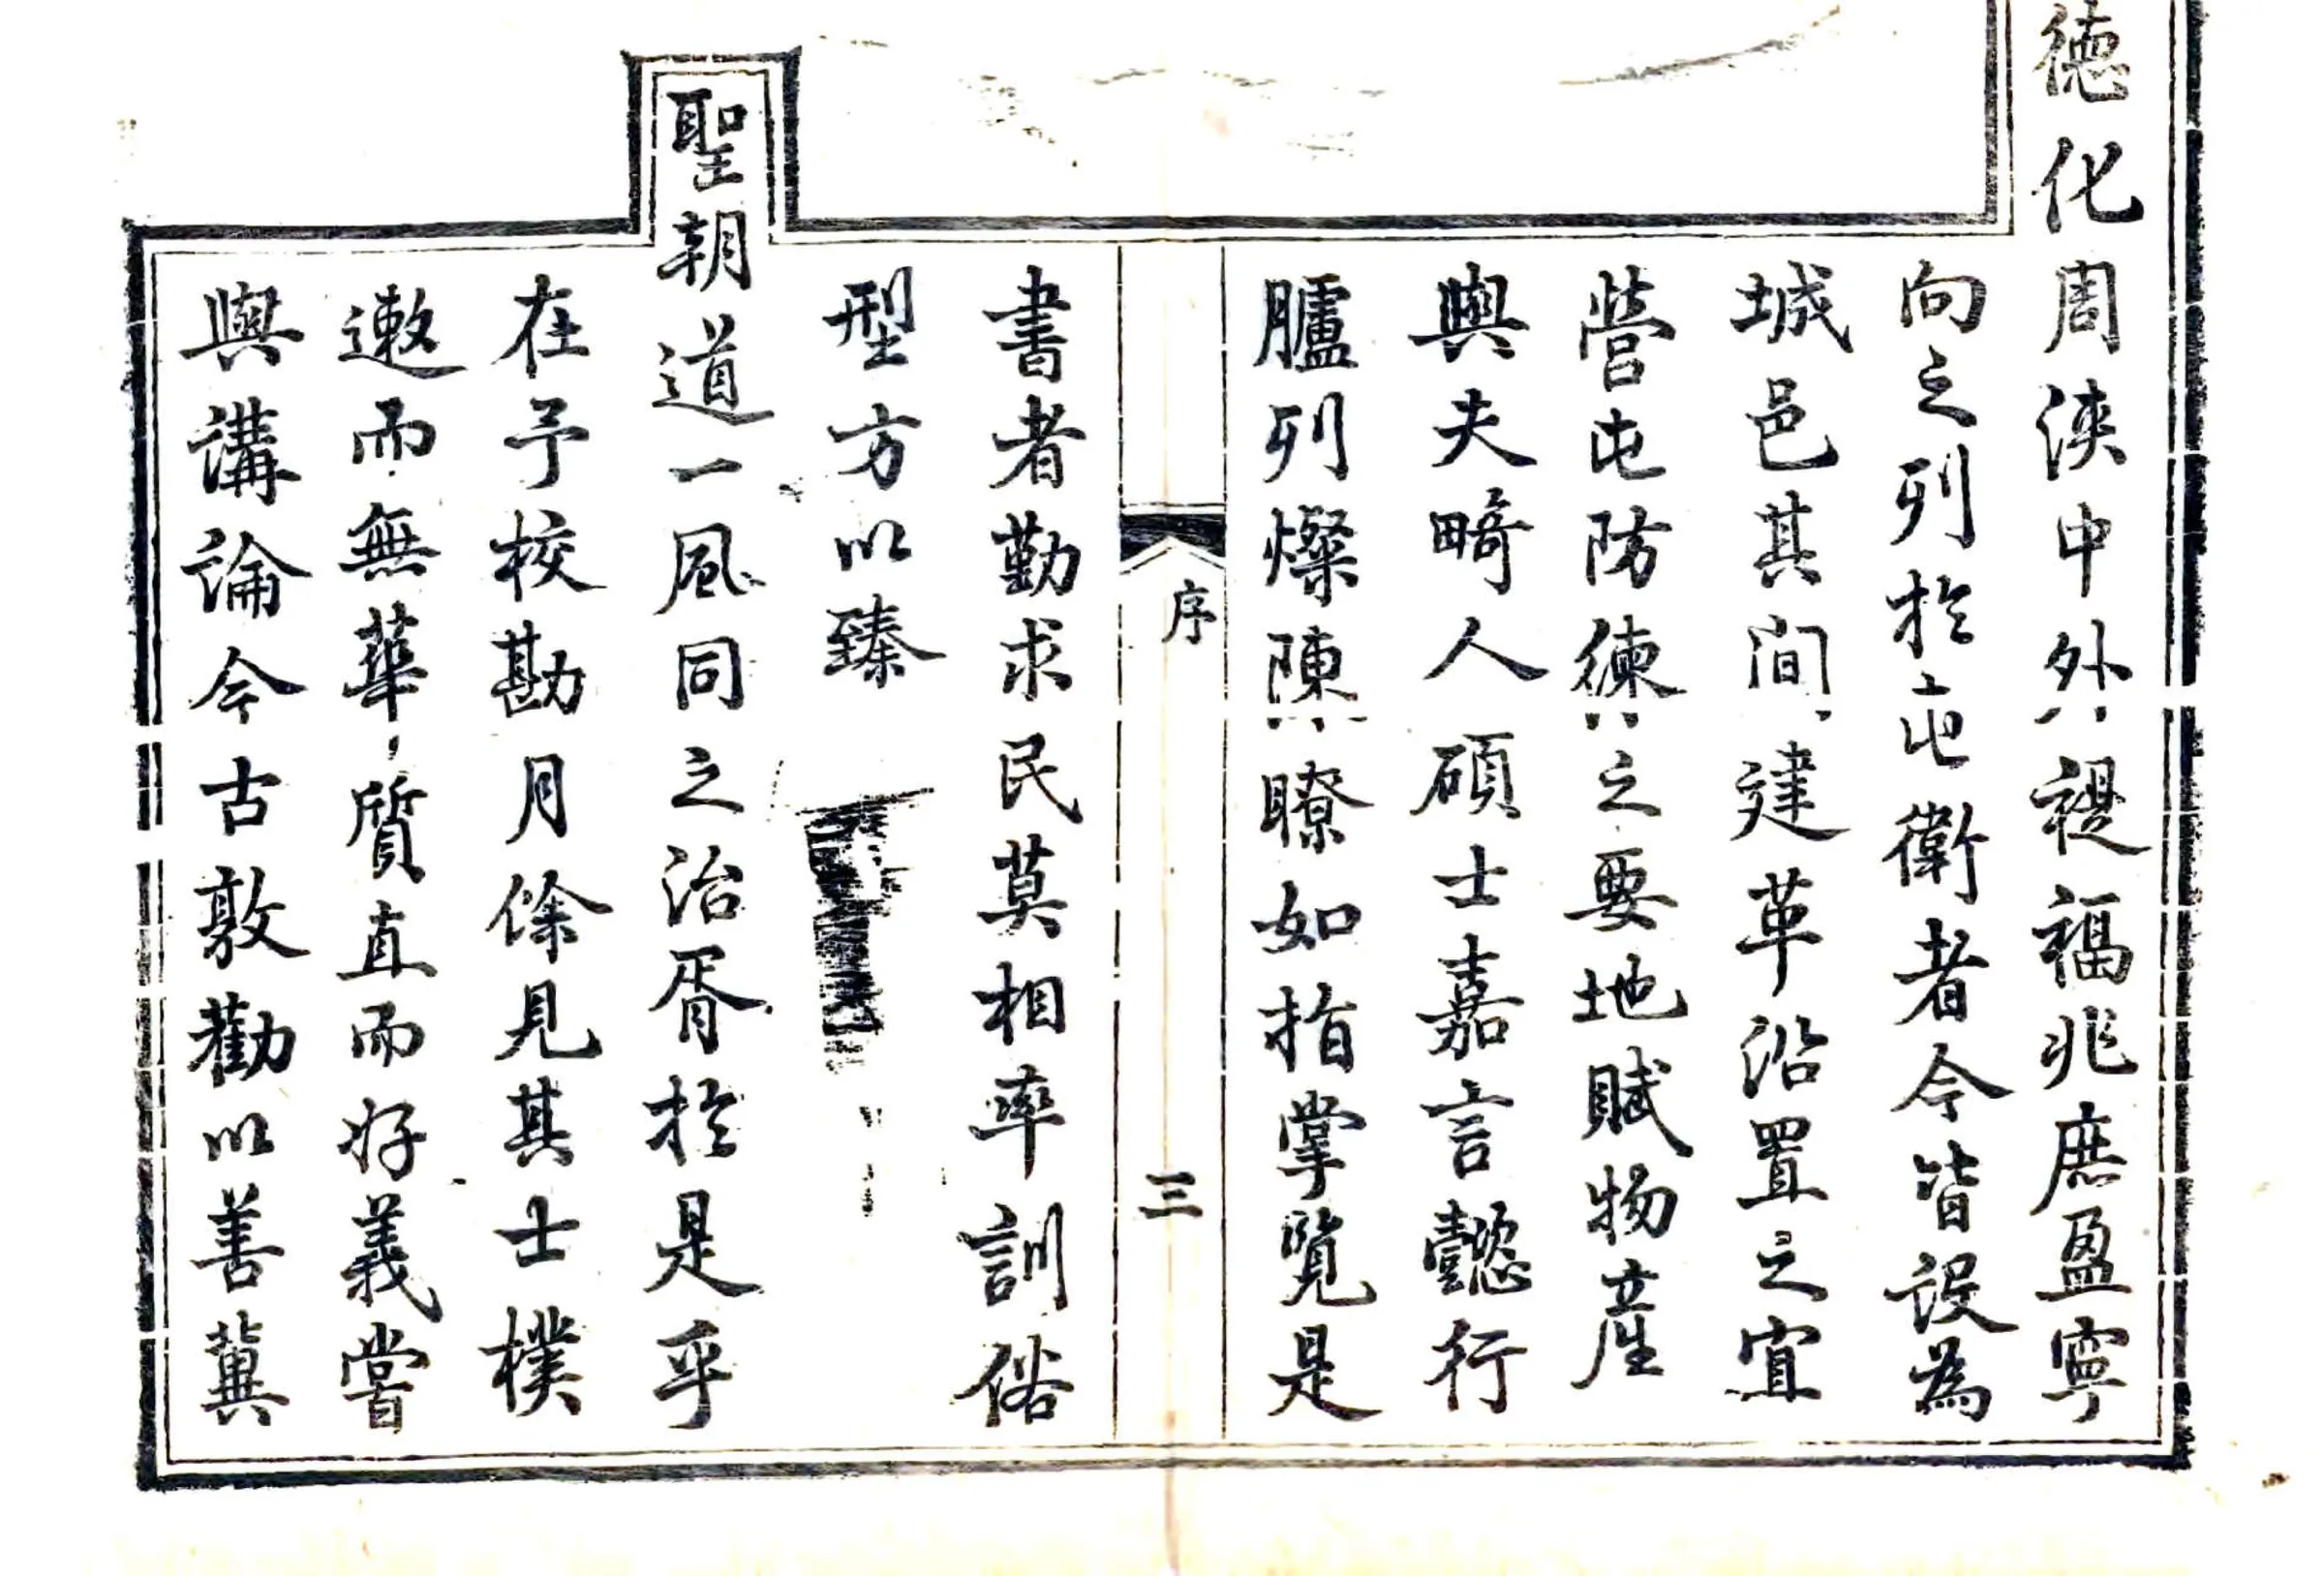 德化周浹中外禔福兆庶盈寧
向之列於屯衛者今皆設為
城邑其間建革沿置之宜
營屯防練之要地賦物產
與夫畸人碩士嘉言懿行
臚列燦陳瞭如指掌覽是
序
三
書者勤求民莫相率訓俗
型方以臻
聖朝道一風同之治胥於是乎
在予校勘月餘見其士樸
遬而無華質直而好義嘗
與講論今古敦勸以善冀